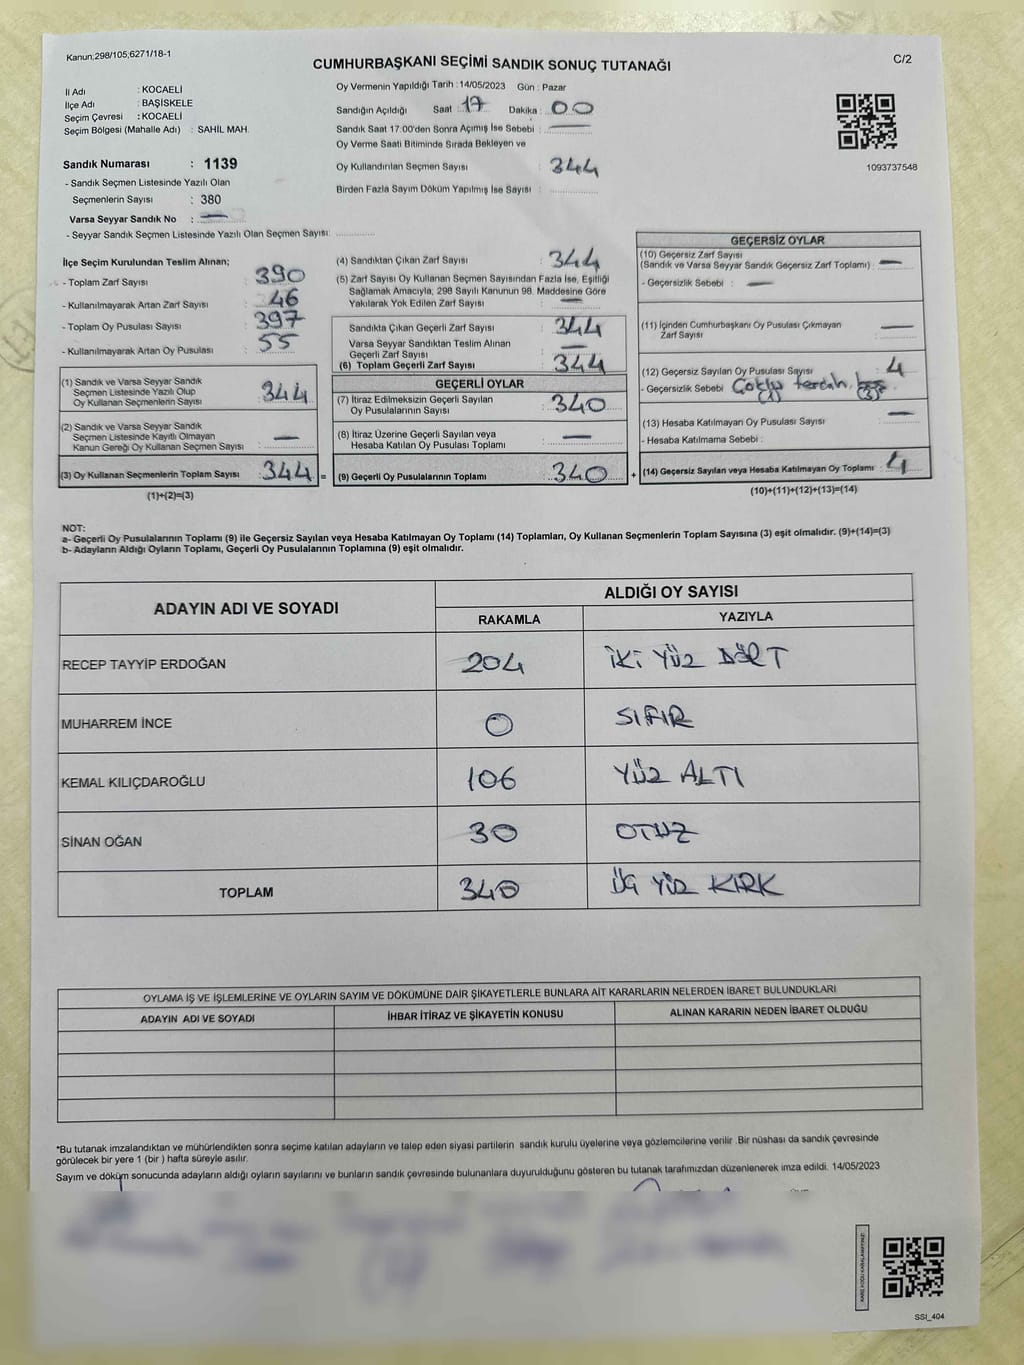 Kanun;298/105;6271/18-1
C/2
CUMHURBAŞKANI SEÇİMİ SANDIK SONUÇ TUTANAĞI
İl Adı : KOCAELİ
İlçe Adı : BAŞİSKELE
Seçim Çevresi : KOCAELİ
Seçim Bölgesi (Mahalle Adı) : SAHİL MAH.
Sandık Numarası : 1139
- Sandık Seçmen Listesinde Yazılı Olan
Seçmenlerin Sayısı : 380
Varsa Seyyar Sandık No : —
- Seyyar Sandık Seçmen Listesinde Yazılı Olan Seçmen Sayısı:
Oy Vermenin Yapıldığı Tarih : 14/05/2023 Gün : Pazar
Sandığın Açıldığı Saat : 17 Dakika : 00
Sandık Saat 17:00'den Sonra Açımış İse Sebebi : —
Oy Verme Saati Bitiminde Sırada Bekleyen ve
Oy Kullandırılan Seçmen Sayısı : 344
Birden Fazla Sayım Döküm Yapılmış İse Sayısı :
1093737548
İlçe Seçim Kurulundan Teslim Alınan;
- Toplam Zarf Sayısı : 390
- Kullanılmayarak Artan Zarf Sayısı : 46
- Toplam Oy Pusulası Sayısı : 397
- Kullanılmayarak Artan Oy Pusulası : 55
(1) Sandık ve Varsa Seyyar Sandık
Seçmen Listesinde Yazılı Olup
Oy Kullanan Seçmenlerin Sayısı : 344
(2) Sandık ve Varsa Seyyar Sandık
Seçmen Listesinde Kayıtlı Olmayan
Kanun Gereği Oy Kullanan Seçmen Sayısı : —
(3) Oy Kullanan Seçmenlerin Toplam Sayısı : 344 =
(1)+(2)=(3)
(4) Sandıktan Çıkan Zarf Sayısı : 344
(5) Zarf Sayısı Oy Kullanan Seçmen Sayısından Fazla İse, Eşitliği
Sağlamak Amacıyla, 298 Sayılı Kanunun 98. Maddesine Göre
Yakılarak Yok Edilen Zarf Sayısı : —
Sandıkta Çıkan Geçerli Zarf Sayısı : 344
Varsa Seyyar Sandıktan Teslim Alınan
Geçerli Zarf Sayısı : —
(6) Toplam Geçerli Zarf Sayısı : 344
GEÇERLİ OYLAR
(7) İtiraz Edilmeksizin Geçerli Sayılan
Oy Pusulalarının Sayısı : 340
(8) İtiraz Üzerine Geçerli Sayılan veya
Hesaba Katılan Oy Pusulası Toplamı : —
(9) Geçerli Oy Pusulalarının Toplamı : 340 +
GEÇERSİZ OYLAR
(10) Geçersiz Zarf Sayısı
(Sandık ve Varsa Seyyar Sandık Geçersiz Zarf Toplamı) : —
- Geçersizlik Sebebi : —
(11) İçinden Cumhurbaşkanı Oy Pusulası Çıkmayan
Zarf Sayısı : —
(12) Geçersiz Sayılan Oy Pusulası Sayısı : 4
- Geçersizlik Sebebi : Çoklu tercih, boş
(1) (3)
(13) Hesaba Katılmayan Oy Pusulası Sayısı : —
- Hesaba Katılmama Sebebi :
(14) Geçersiz Sayılan veya Hesaba Katılmayan Oy Toplamı : 4
(10)+(11)+(12)+(13)=(14)
NOT:
a- Geçerli Oy Pusulalarının Toplamı (9) ile Geçersiz Sayılan veya Hesaba Katılmayan Oy Toplamı (14) Toplamları, Oy Kullanan Seçmenlerin Toplam Sayısına (3) eşit olmalıdır. (9)+(14)=(3)
b- Adayların Aldığı Oyların Toplamı, Geçerli Oy Pusulalarının Toplamına (9) eşit olmalıdır.
ADAYIN ADI VE SOYADI
ALDIĞI OY SAYISI
RAKAMLA YAZIYLA
RECEP TAYYİP ERDOĞAN 204 İKİ YÜZ DÖRT
MUHARREM İNCE 0 SIFIR
KEMAL KILIÇDAROĞLU 106 YÜZ ALTI
SİNAN OĞAN 30 OTUZ
TOPLAM 340 ÜÇ YÜZ KIRK
OYLAMA İŞ VE İŞLEMLERİNE VE OYLARIN SAYIM VE DÖKÜMÜNE DAİR ŞİKAYETLERLE BUNLARA AİT KARARLARIN NELERDEN İBARET BULUNDUKLARI
ADAYIN ADI VE SOYADI İHBAR İTİRAZ VE ŞİKAYETİN KONUSU ALINAN KARARIN NEDEN İBARET OLDUĞU
*Bu tutanak imzalandıktan ve mühürlendikten sonra seçime katılan adayların ve talep eden siyasi partilerin sandık kurulu üyelerine veya gözlemcilerine verilir .Bir nüshası da sandık çevresinde
görülecek bir yere 1 (bir ) hafta süreyle asılır.
Sayım ve döküm sonucunda adayların aldığı oyların sayılarını ve bunların sandık çevresinde bulunanlara duyurulduğunu gösteren bu tutanak tarafımızdan düzenlenerek imza edildi. 14/05/2023
SSI_404